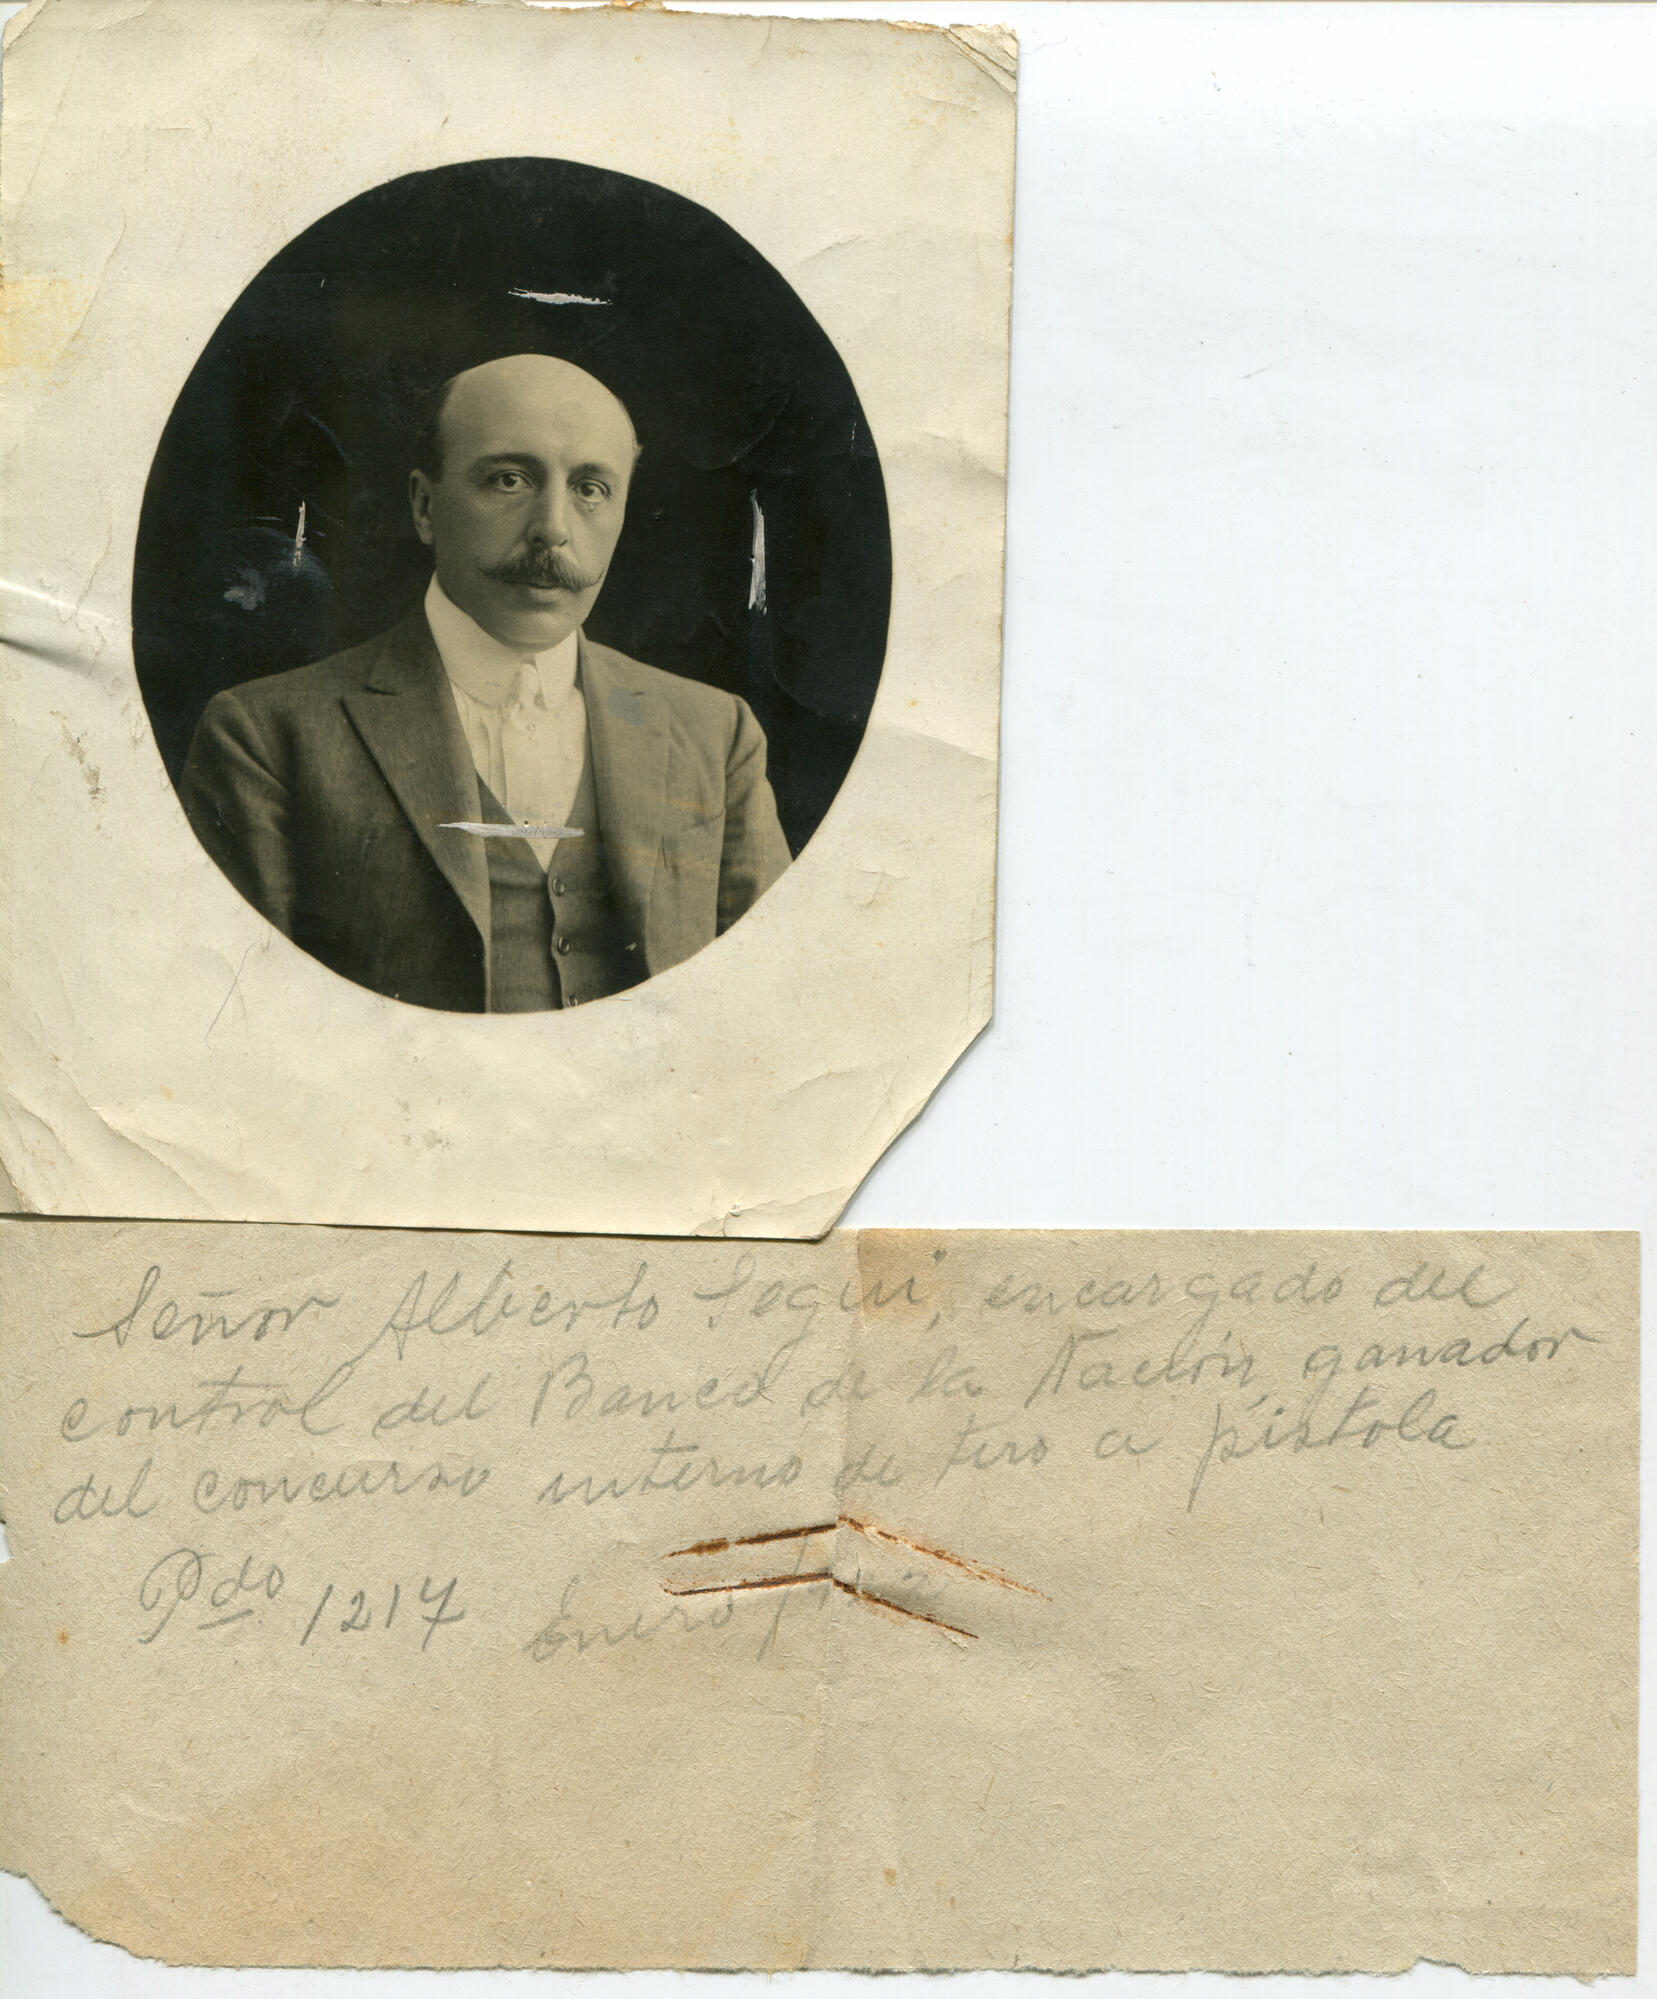 Señor Alberto Segui, encargado del
control del Banco de la Nación ganador
del concurso interno de tiro a pistola
Pdo 1217 Enero